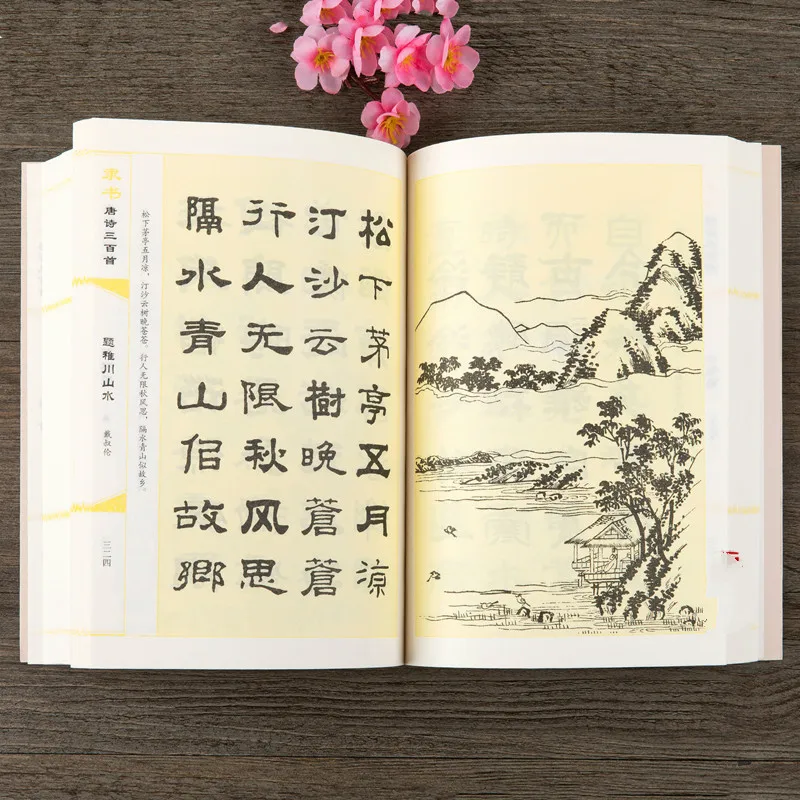 松下茅亭五月凉
汀沙云樹晚蒼蒼
行人无限秋风思
隔水青山佀故鄉
松下茅亭五月凉，汀沙云树晚苍苍。行人无限秋风思，隔水青山似故乡。
隶书
唐诗三百首
题稚川山水
戴叔伦
三二四